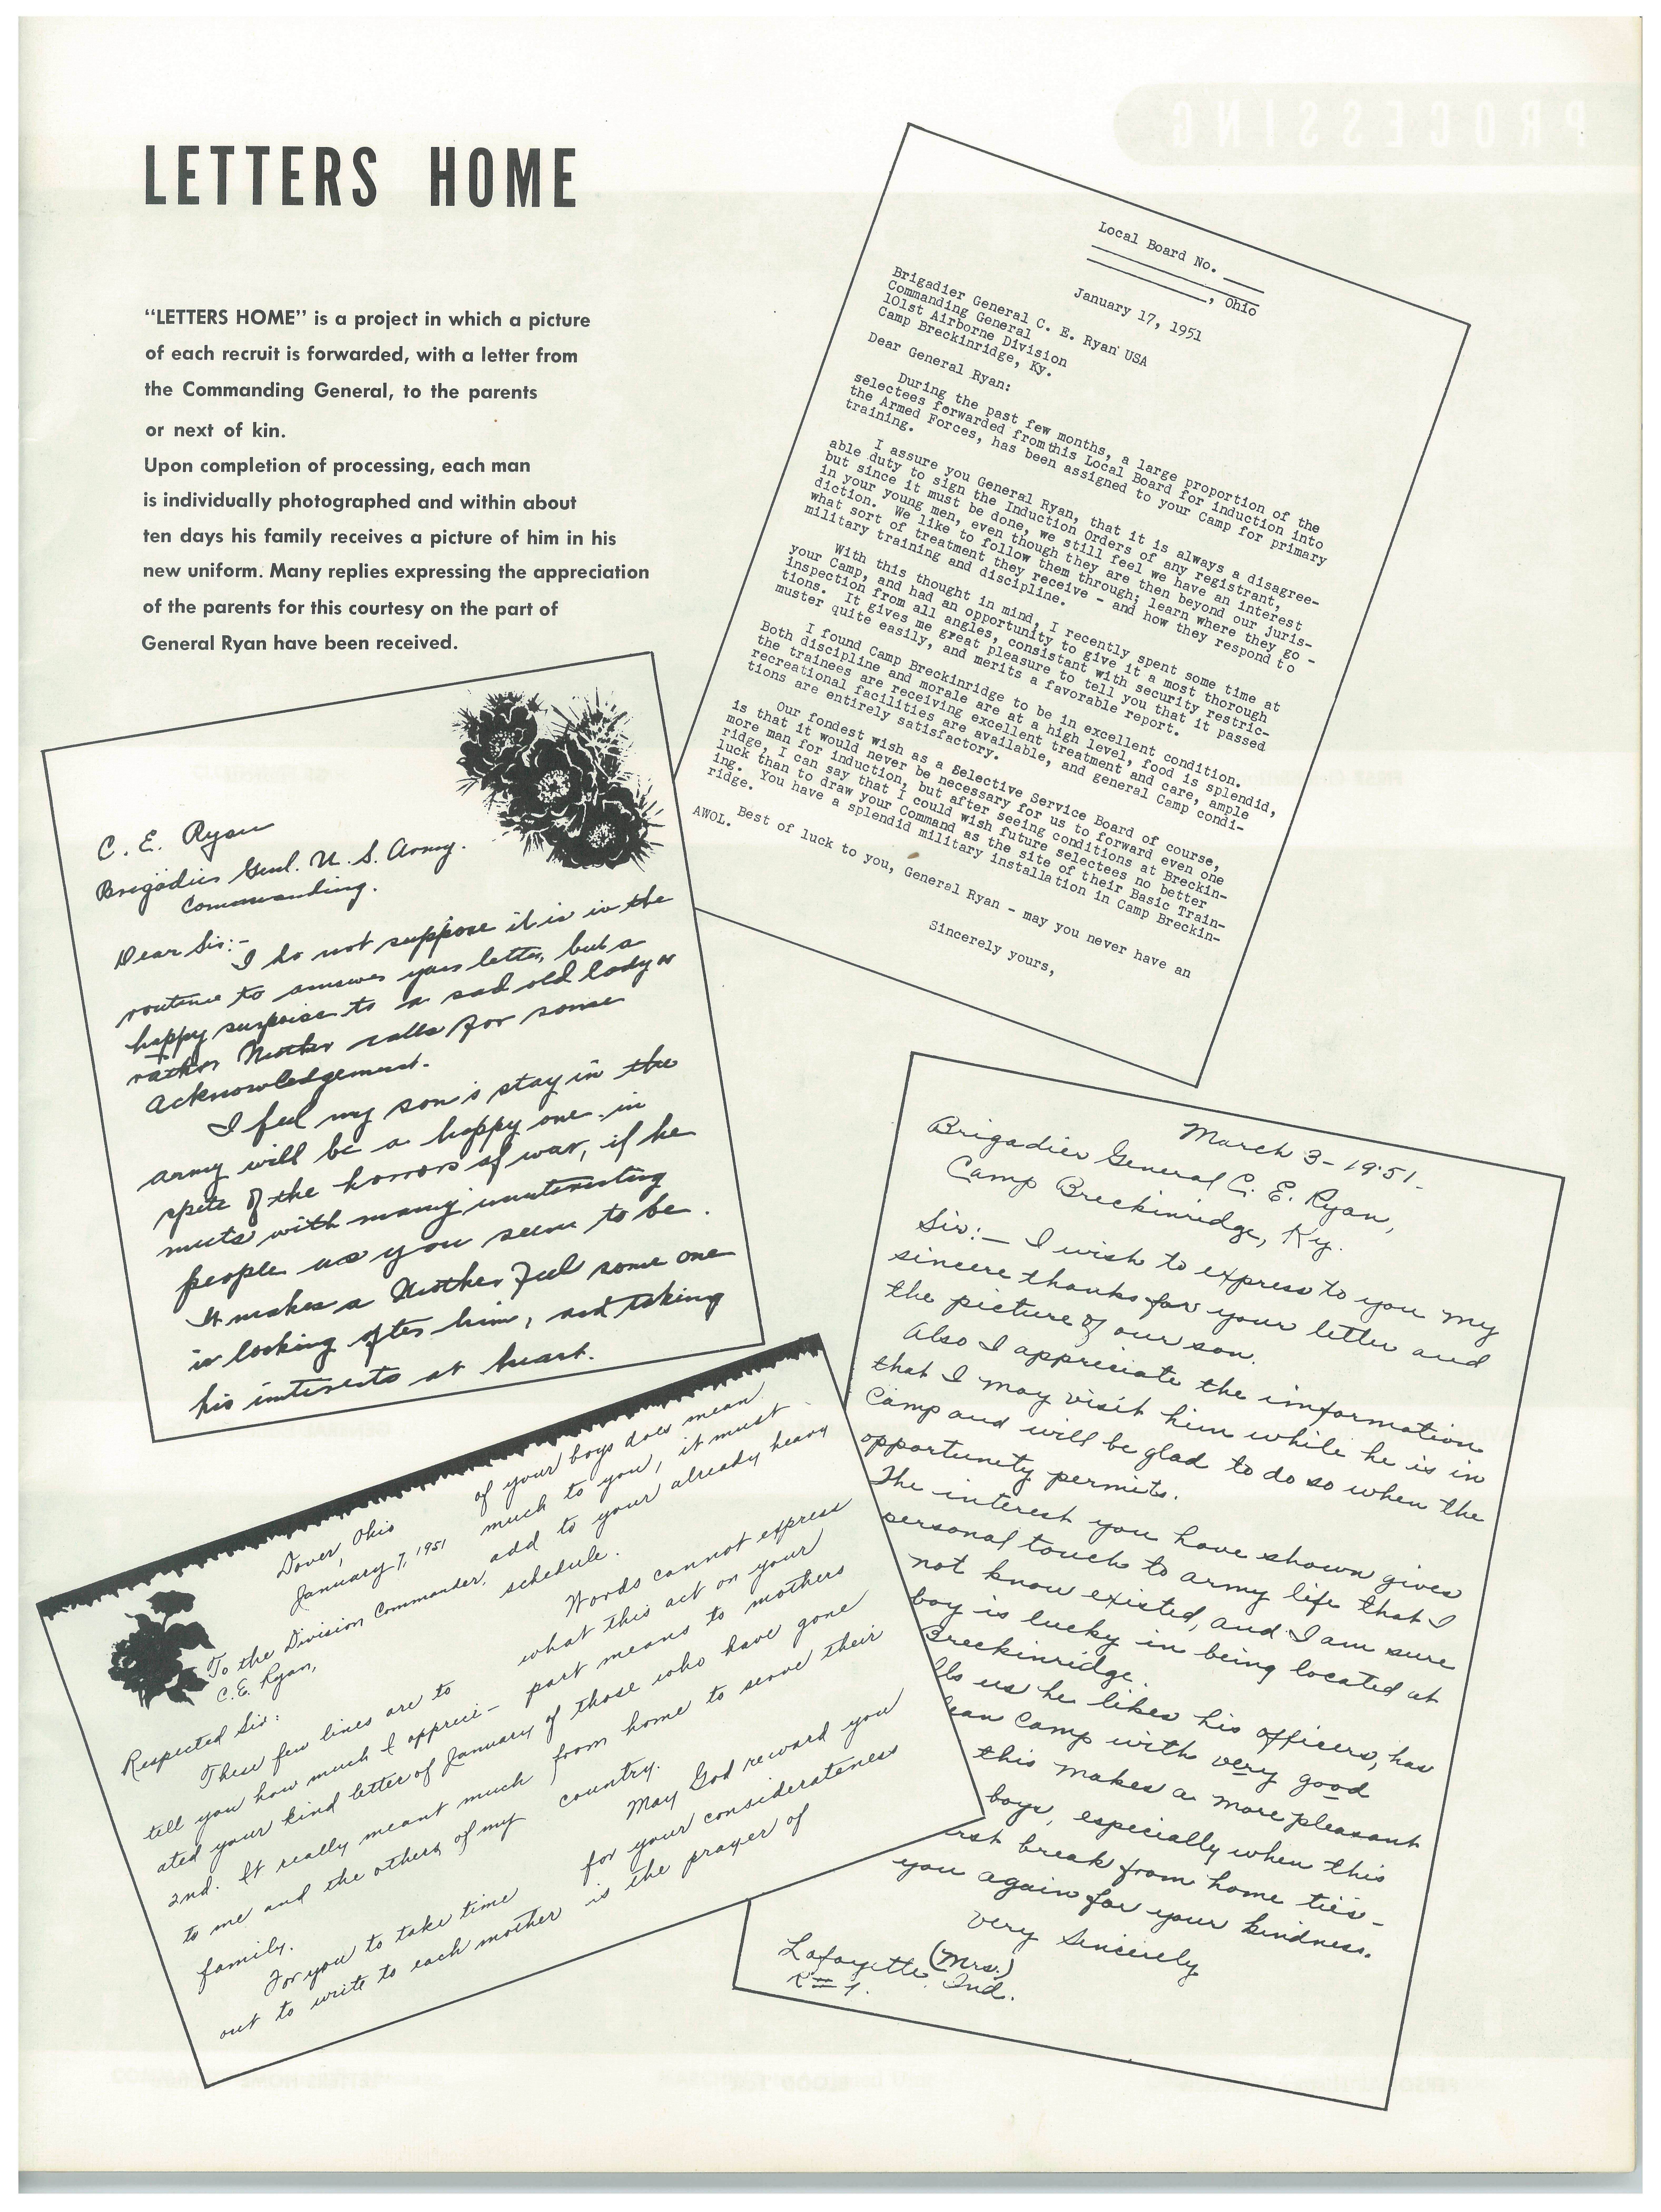 LETTERS HOME
"LETTERS HOME" is a project in which a picture
of each recruit is forwarded, with a letter from
the Commanding General, to the parents
or next of kin.
Upon completion of processing, each man
is individually photographed and within about
ten days his family receives a picture of him in his
new uniform. Many replies expressing the appreciation
of the parents for this courtesy on the part of
General Ryan have been received.
Local Board No.
, Ohio
January 17, 1951
Brigadier General C. E. Ryan' USA
Commanding General
101st Airborne Division
Camp Breckinridge, Ky.
Dear General Ryan:
During the past few months, a large proportion of the
selectees forwarded fromthis Local Board for induction into
the Armed Forces, has been assigned to your Camp for primary
training.
I assure you General Ryan, that it is always a disagree-
able duty to sign the Induction Orders of any registrant,
but since it must be done, we still feel we have an interest
in your young men, even though they are then beyond our juris-
diction. We like to follow them through; learn where they go -
what sort of treatment they receive - and how they respond to
military training and discipline.
With this thought in mind, I recently spent some time at
your Camp, and had an opportunity to give it a most thorough
inspection from all angles, consistant with security restric-
tions. It gives me great pleasure to tell you that it passed
muster quite easily, and merits a favorable report.
I found Camp Breckinridge to be in excellent condition.
Both discipline and morale are at a high level, food is splendid,
the trainees are receiving excellent treatment and care, ample
recreational facilities are available, and general Camp condi-
tions are entirely satisfactory.
Our fondest wish as a Selective Service Board of course,
is that it would never be necessary for us to forward even one
more man for induction, but after seeing conditions at Breckin-
ridge, I can say that I could wish future selectees no better
luck than to draw your Command as the site of their Basic Train-
ing. You have a splendid military installation in Camp Breckin-
ridge.
Best of luck to you, General Ryan - may you never have an
AWOL.
Sincerely yours,
C. E. Ryan
Brigadier Genl. U. S. Army.
Commanding.
Dear Sir:-
I do not suppose it is in the
routine to answer your letter, but a
happy surprise to a sad old lady or
rather Mother calls for some
acknowledgement.
I feel my son's stay in the
army will be a happy one in
spite of the horrors of war, if he
meets with many interesting
people as you seem to be.
It makes a Mother feel some one
is looking after him, and taking
his interests at heart.
Dover, Ohio
January 7, 1951
To the Division Commander,
C.E. Ryan,
Respected Sir:
These few lines are to
tell you how much I appreci-
ated your kind letter of January
2nd. It really meant much
to me and the others of my
family.
For you to take time
out to write to each mother
of your boys does mean
much to you, it must
add to your already heavy
schedule.
Words cannot express
what this act on your
part means to mothers
of those who have gone
from home to serve their
country.
May God reward you
for your considerateness
is the prayer of
March 3-1951-
Brigadier General C. E. Ryan,
Camp Breckinridge, Ky.
Sir:— I wish to express to you my
sincere thanks for your letter and
the picture of our son.
Also I appreciate the imformation
that I may visit him while he is in
camp and will be glad to do so when the
opportunity permits.
The interest you have shown gives
personal touch to army life that I
not know existed, and I am sure
boy is lucky in being located at
Breckinridge.
lls us he likes his officers, has
lean camp with very good
this makes a more pleasant
boys, especially when this
irst break from home ties-
you again for your kindness.
Very Sincerely
(Mrs.)
Lafayette, Ind.